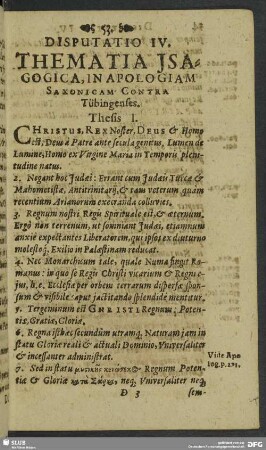 53.
DISPUTATIO IV.
THEMATIA JSA-
GOGICA, IN APOLOGIAM
SAXONICAM CONTRA
Tübingenses.
Thesis I.
CHRISTUS, REX Noster, DEUS & Homo
est, Deus à Patre ante secula genitus, Lumen de
Lumine, Homo ex Virgine Maria in Temporis pleni-
tudine natus.
2. Negant hoc Judæi: Errant cum Judæis Turcæ &
Mahometistæ, Antitrinitarij, & tam veterum quàm
recentium Arianorum execranda colluvies.
3. Regnum nostri Regis Spirituale est, & æternum.
Ergò non terrenum, ut somniant Judæi, etiamnum
anxiè expectantes Liberatorem, qui ipsos ex diuturno
molestoq́; Exilio in Palæstinam reducat.
4. Nec Monarchicum tale, quale Numa fingit Ro-
manus: in quo se Regis Christi vicarium & Regni e-
jus, h. e. Ecclesiæ per orbem terrarum dispersæ spon-
sum & visibile caput jactitando splendidè mentitur.
5. Tergeminum est CHRISTI Regnum: Poten-
tiæ, Gratiæ, Gloriæ.
6. Regna isthæc secundùm utramq; Naturam jam in
statu Gloriæ reali & actuali Dominio, Universaliter
& incessanter administrat.
Vide Apo
log. p. 271.
7. Sed in statu Regnum Poten-
tiæ & Gloriæ κατὰ Σάρκα, neq; Universaliter neq;
D 3
sem-
SLUB
DFG